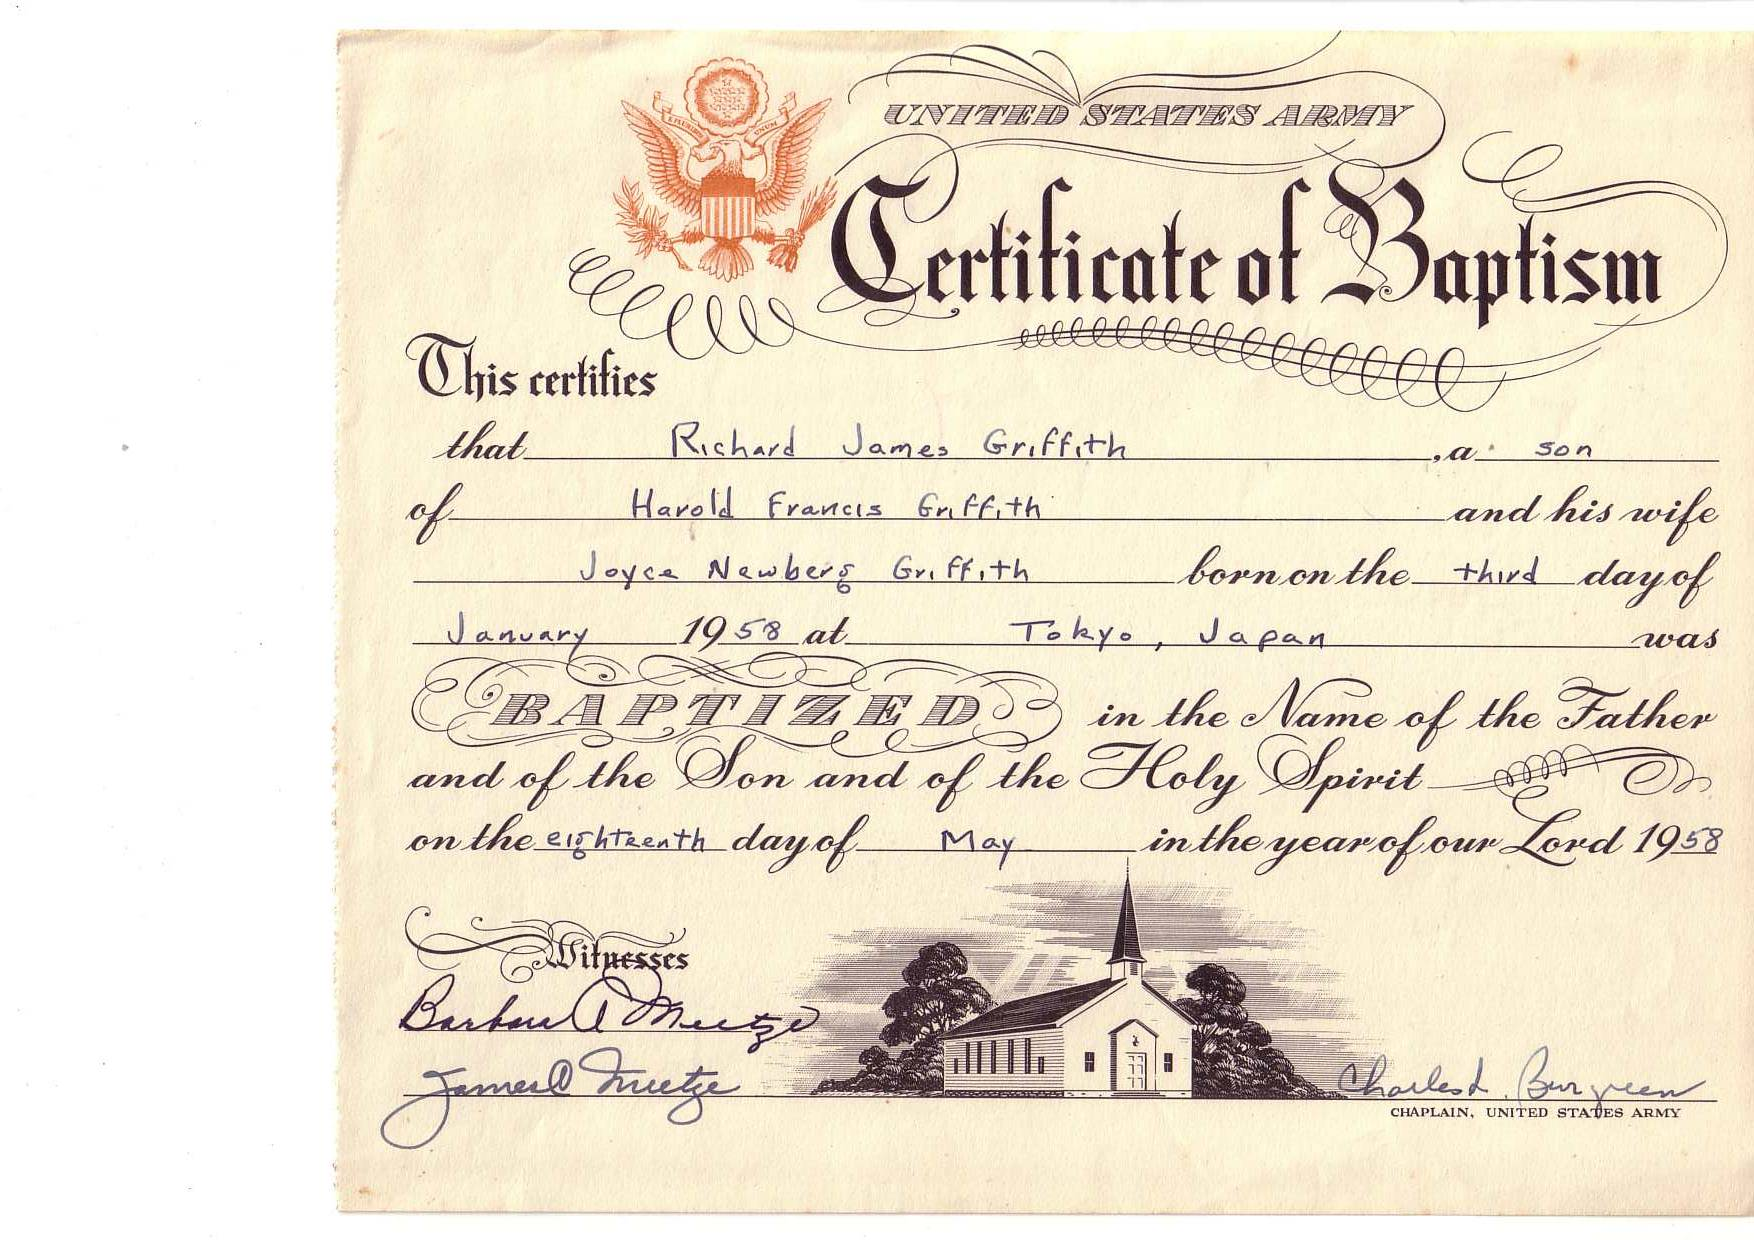 E PLURIBUS UNUM
UNITED STATES ARMY
Certificate of Baptism
This certifies
that Richard James Griffith, a son
of Harold Francis Griffith and his wife
Joyce Newberg Griffith born on the third day of
January 1958 at Tokyo, Japan was
BAPTIZED in the Name of the Father
and of the Son and of the Holy Spirit
on the eighteenth day of May in the year of our Lord 1958
Witnesses
Barbara A Meetze
James A Meetze
Charles L. Burgreen
CHAPLAIN, UNITED STATES ARMY